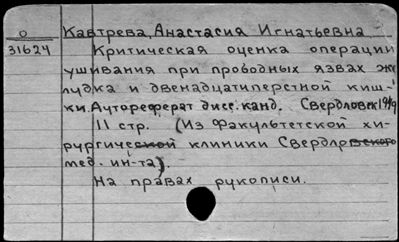 О Кавтрева, Анастасия Игнатьевна
31624 Критическая оценка операции
ушивания при прободных язвах же-
лудка и двенадцатиперстной киш-
ки. Автореферат дисс. канд. Свердловск
11 стр. (Из факультетской хи-
рургической клиники Свердловского
мед. ин-та).
На правах рукописи.